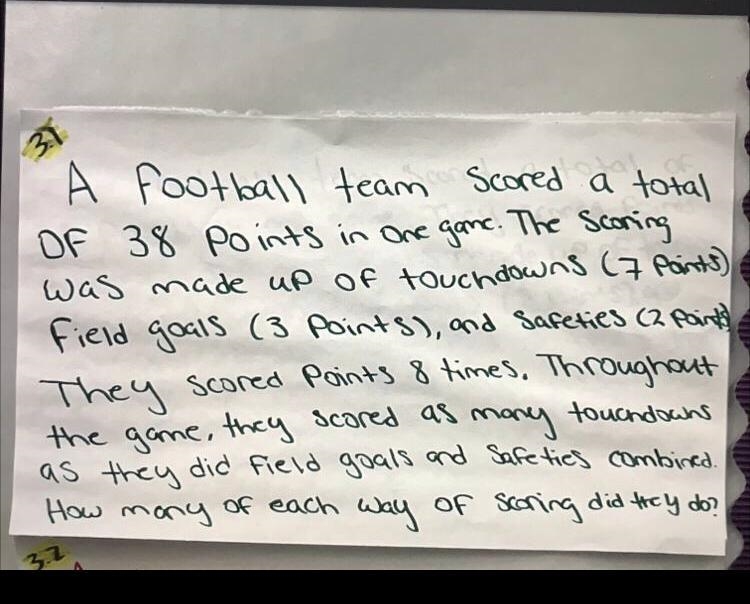 3.1
A football team scored a total
OF 38 Points in one game. The scoring
was made up of touchdowns (7 Points)
Field goals (3 Points), and Safeties (2 Points)
They scored Points 8 times. Throughout
the game, they scored as many touchdowns
as they did Field goals and Safeties combined.
How many of each way of scoring did they do?
3.2